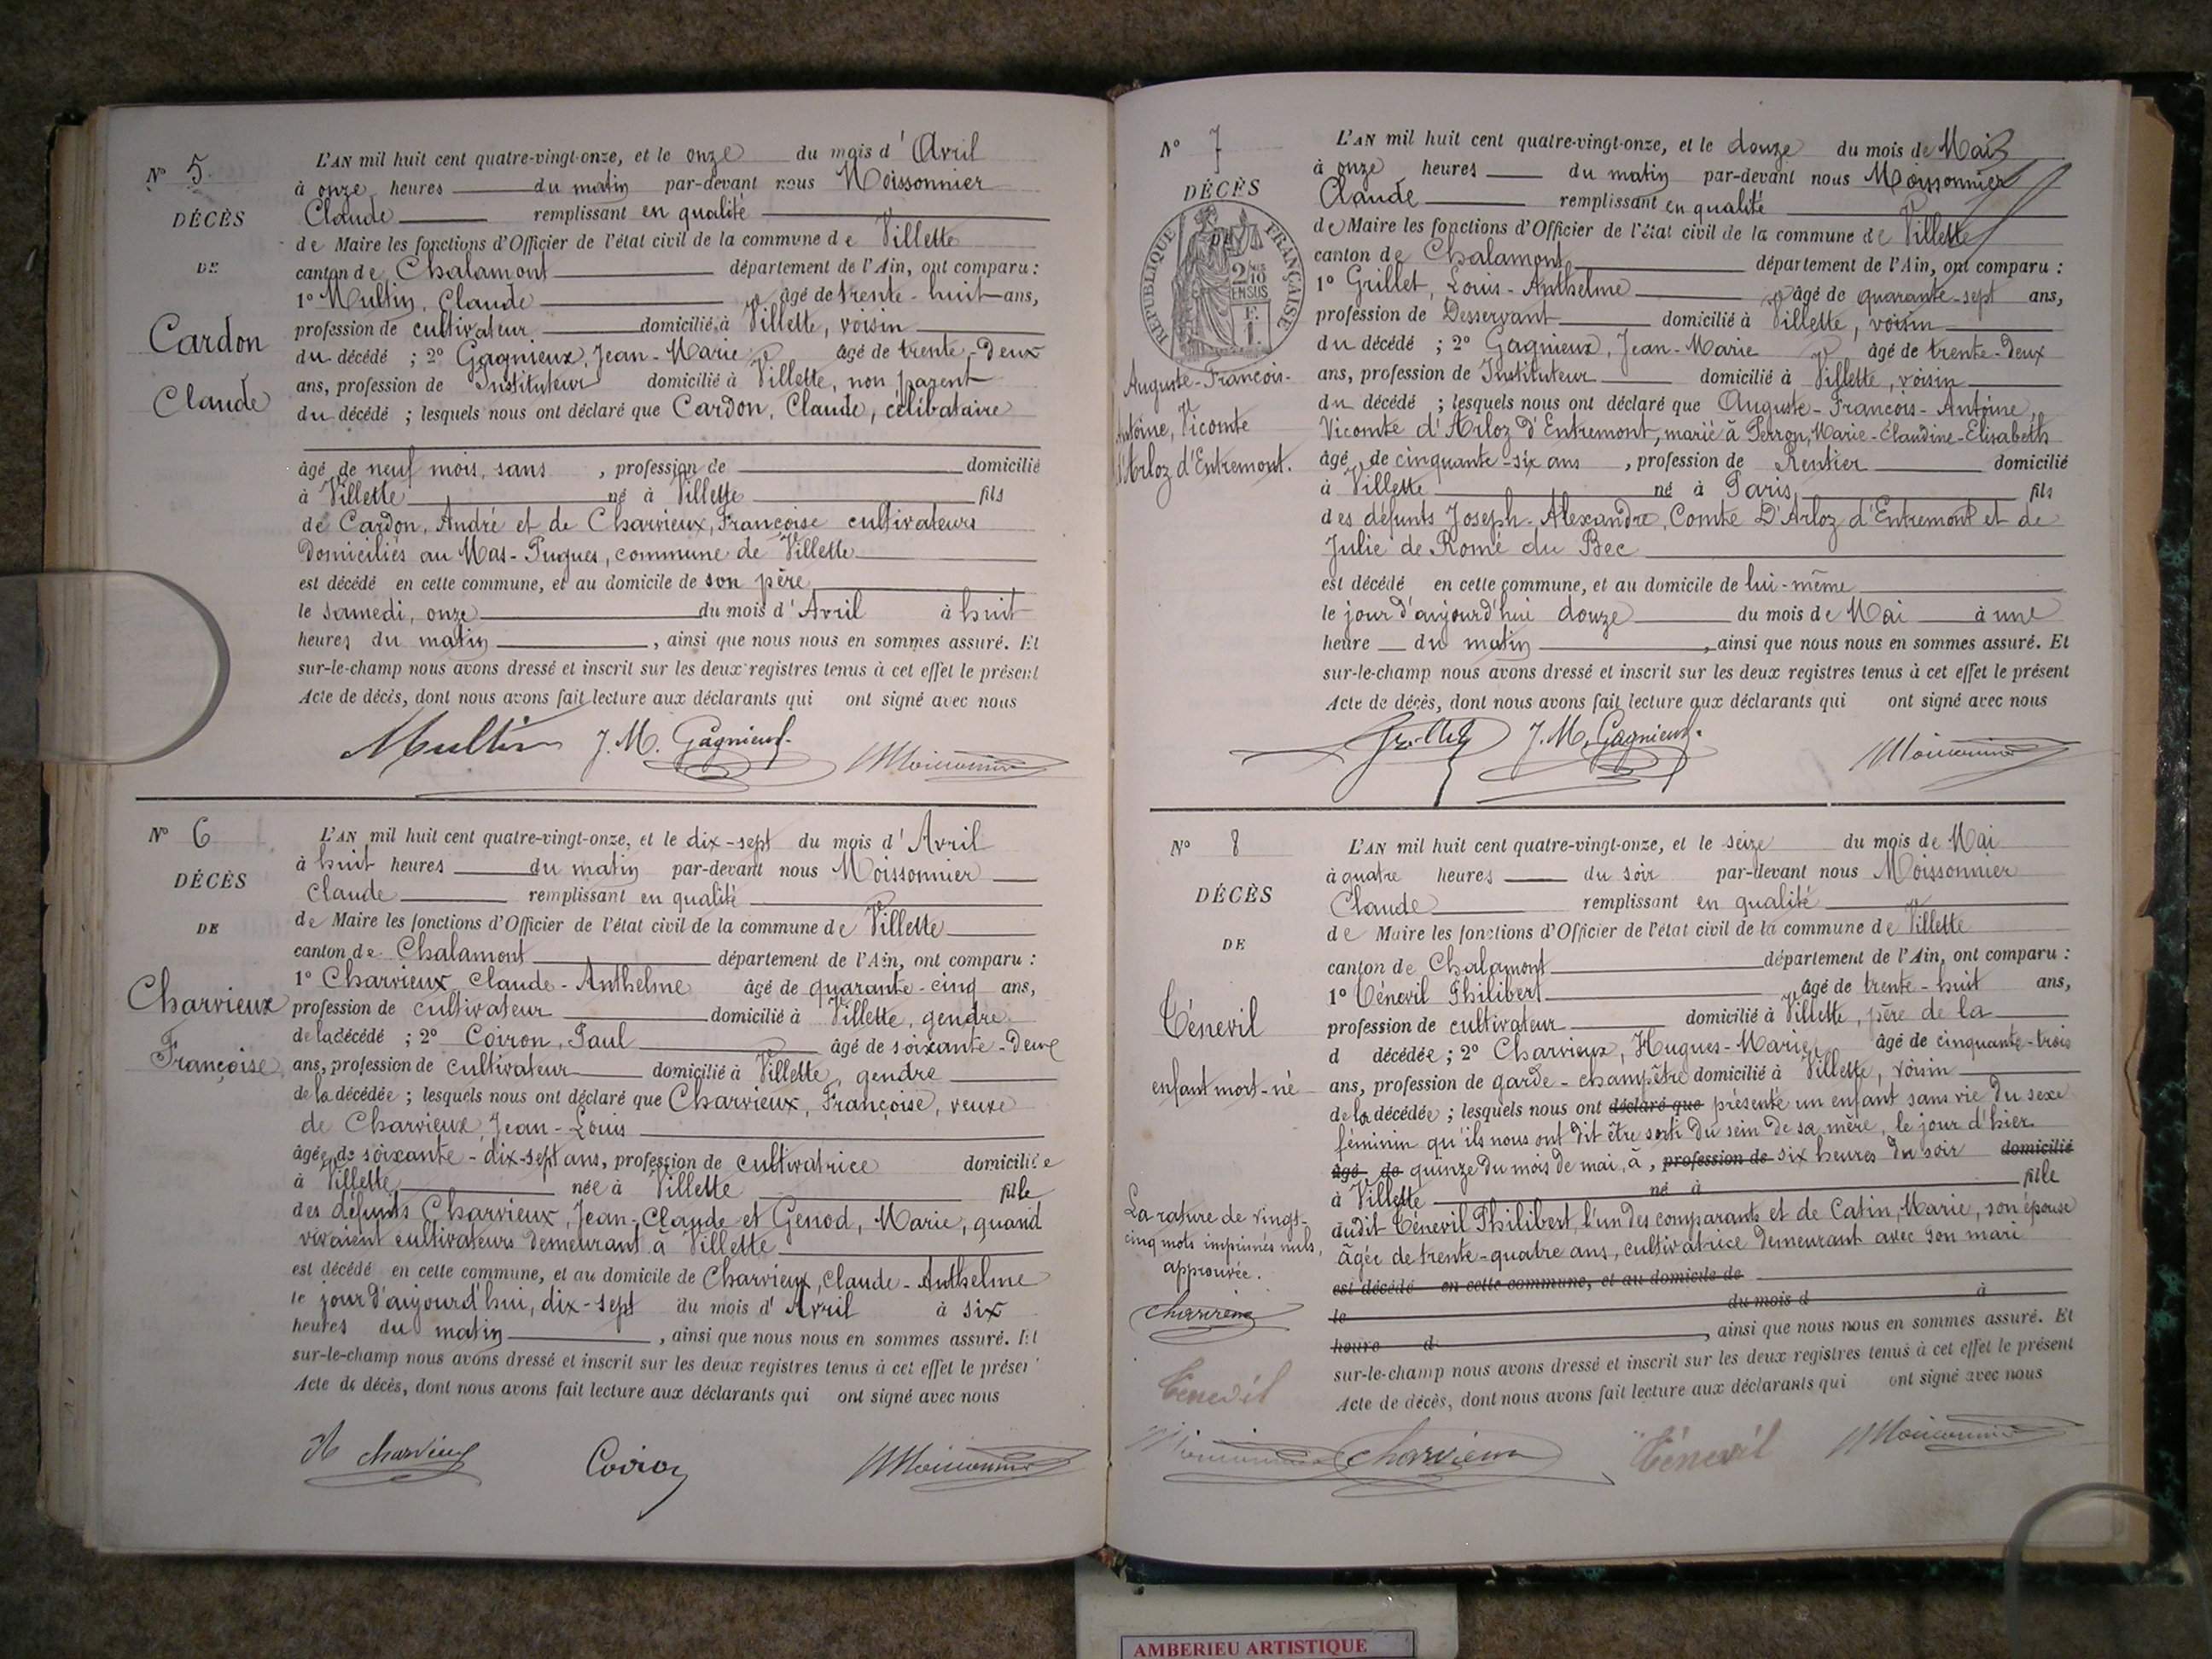 N° 5
DÉCÈS
DE
Cardon
Claude
L'AN mil huit cent quatre-vingt-onze, et le onze du mois d'Avril
à onze heures du matin par-devant nous Moissonnier
Claude remplissant en qualité
de Maire les fonctions d'Officier de l'état civil de la commune de Villette
canton de Chalamont département de l'Ain, ont comparu :
1° Multin, Claude âgé de trente-huit ans,
profession de cultivateur domicilié à Villette, voisin
du décédé ; 2° Gagnieux, Jean-Marie âgé de trente-deux
ans, profession de Instituteur domicilié à Villette, non parent
du décédé ; lesquels nous ont déclaré que Cardon, Claude, célibataire
âgé de neuf mois, sans , profession de domicilié
à Villette né à Villette fils
de Cardon, André et de Charvieux, Françoise cultivateurs
domiciliés au Mas-Pugues, commune de Villette
est décédé en cette commune, et au domicile de son père
le samedi, onze du mois d'Avril à huit
heures du matin , ainsi que nous nous en sommes assuré. Et
sur-le-champ nous avons dressé et inscrit sur les deux registres tenus à cet effet le présent
Acte de décès, dont nous avons fait lecture aux déclarants qui ont signé avec nous
Multin J. M. Gagnieux Moissonnier
N° 6
DÉCÈS
DE
Charvieux
Françoise
L'AN mil huit cent quatre-vingt-onze, et le dix-sept du mois d'Avril
à huit heures du matin par-devant nous Moissonnier
Claude remplissant en qualité
de Maire les fonctions d'Officier de l'état civil de la commune de Villette
canton de Chalamont département de l'Ain, ont comparu :
1° Charvieux, Claude-Anthelme âgé de quarante-cinq ans,
profession de cultivateur domicilié à Villette, gendre
de la décédé ; 2° Coiron, Paul âgé de soixante-deux
ans, profession de cultivateur domicilié à Villette, gendre
de la décédée ; lesquels nous ont déclaré que Charvieux, Françoise, veuve
de Charvieux, Jean-Louis
âgée de soixante-dix-sept ans, profession de cultivatrice domiciliée
à Villette née à Villette fille
des défunts Charvieux, Jean-Claude et Genod, Marie, quand
vivaient cultivateurs demeurant à Villette
est décédé en cette commune, et au domicile de Charvieux, Claude-Anthelme
le jour d'aujourd'hui, dix-sept du mois d'Avril à six
heures du matin , ainsi que nous nous en sommes assuré. Et
sur-le-champ nous avons dressé et inscrit sur les deux registres tenus à cet effet le présent
Acte de décès, dont nous avons fait lecture aux déclarants qui ont signé avec nous
Charvieux Coiron Moissonnier
N° 7
DÉCÈS
DE
RÉPUBLIQUE FRANÇAISE
2/10 EN SUS
Auguste-François-
Antoine, Vicomte
d'Arloz d'Entremont.
L'AN mil huit cent quatre-vingt-onze, et le douze du mois de Mai
à onze heures du matin par-devant nous Moissonnier
Claude remplissant en qualité
de Maire les fonctions d'Officier de l'état civil de la commune de Villette
canton de Chalamont département de l'Ain, ont comparu :
1° Grillet, Louis-Anthelme âgé de quarante-sept ans,
profession de Desservant domicilié à Villette, voisin
du décédé ; 2° Gagnieux, Jean-Marie âgé de trente-deux
ans, profession de Instituteur domicilié à Villette, voisin
du décédé ; lesquels nous ont déclaré que Auguste-François-Antoine,
Vicomte d'Arloz d'Entremont, marié à Perron, Marie-Claudine-Elisabeth
âgé de cinquante-six ans , profession de Rentier domicilié
à Villette né à Paris, fils
des défunts Joseph-Alexandre, Comte D'Arloz d'Entremont et de
Julie de Romé du Bec
est décédé en cette commune, et au domicile de lui-même
le jour d'aujourd'hui douze du mois de Mai à une
heure du matin , ainsi que nous nous en sommes assuré. Et
sur-le-champ nous avons dressé et inscrit sur les deux registres tenus à cet effet le présent
Acte de décès, dont nous avons fait lecture aux déclarants qui ont signé avec nous
Grillet J. M. Gagnieux. Moissonnier
N° 8
DÉCÈS
DE
Ténevil
enfant mort-né
L'AN mil huit cent quatre-vingt-onze, et le seize du mois de Mai
à quatre heures du soir par-devant nous Moissonnier
Claude remplissant en qualité
de Maire les fonctions d'Officier de l'état civil de la commune de Villette
canton de Chalamont département de l'Ain, ont comparu :
1° Ténevil Philibert âgé de trente-huit ans,
profession de cultivateur domicilié à Villette, père de la
d décédée ; 2° Charvieux, Hugues-Marie âgé de cinquante-trois
ans, profession de garde-champêtre domicilié à Villette, voisin
de la décédée ; lesquels nous ont déclaré que présenté un enfant sans vie du sexe
féminin qu'ils nous ont dit être sorti du sein de sa mère, le jour d'hier
âgé de quinze du mois de mai, à , profession de six heures du soir domicilié
à Villette né à fille
dudit Ténevil Philibert, l'un des comparants et de Catin, Marie, son épouse
âgée de trente-quatre ans, cultivatrice demeurant avec son mari
est décédé en cette commune, et au domicile de
le du mois d à
heure d , ainsi que nous nous en sommes assuré. Et
sur-le-champ nous avons dressé et inscrit sur les deux registres tenus à cet effet le présent
Acte de décès, dont nous avons fait lecture aux déclarants qui ont signé avec nous
La rature de vingt-
cinq mots imprimés nuls,
approuvée.
Charvieux
Ténevil
Moissonnier Charvieux Ténevil Moissonnier
AMBERIEU ARTISTIQUE